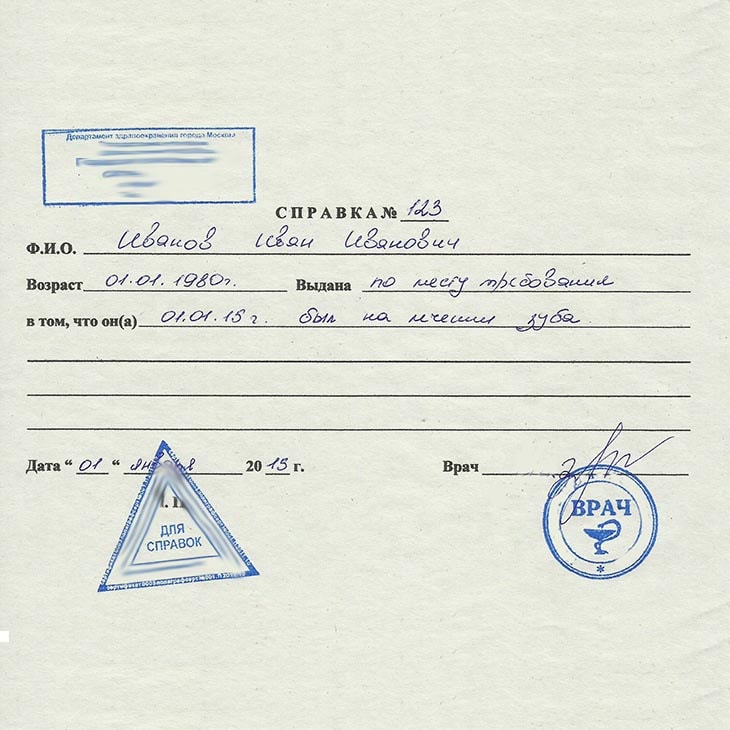 Департамент здравоохранения города Москвы
СПРАВКА № 123
Ф.И.О. Иванов Иван Иванович
Возраст 01.01.1980г. Выдана по месту требования
в том, что он(а) 01.01.15 г. был на лечении зуба.
Дата “ 01 “ января 20 15 г. Врач
ВРАЧ
ДЛЯ
СПРАВОК